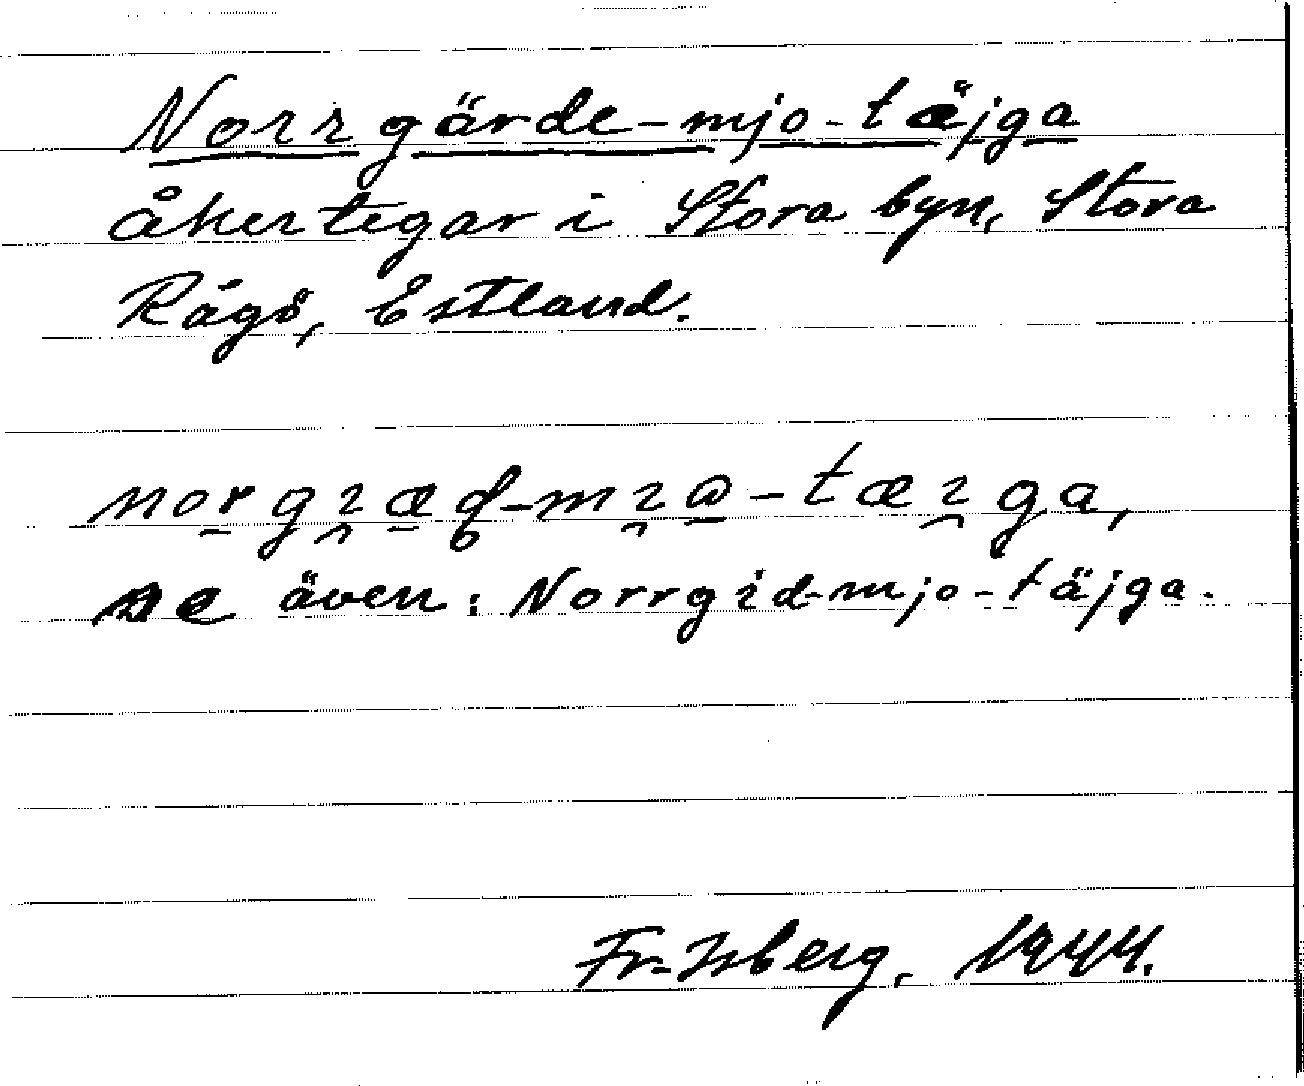 Norrgärde-mjo-täjga
åkertegar i Stora byn, Stora
Rågö, Estland.
norgıæd-mıɷ-tæıga,
se även: Norrgid-mjo-täjga.
Fr. Isberg, 1944.